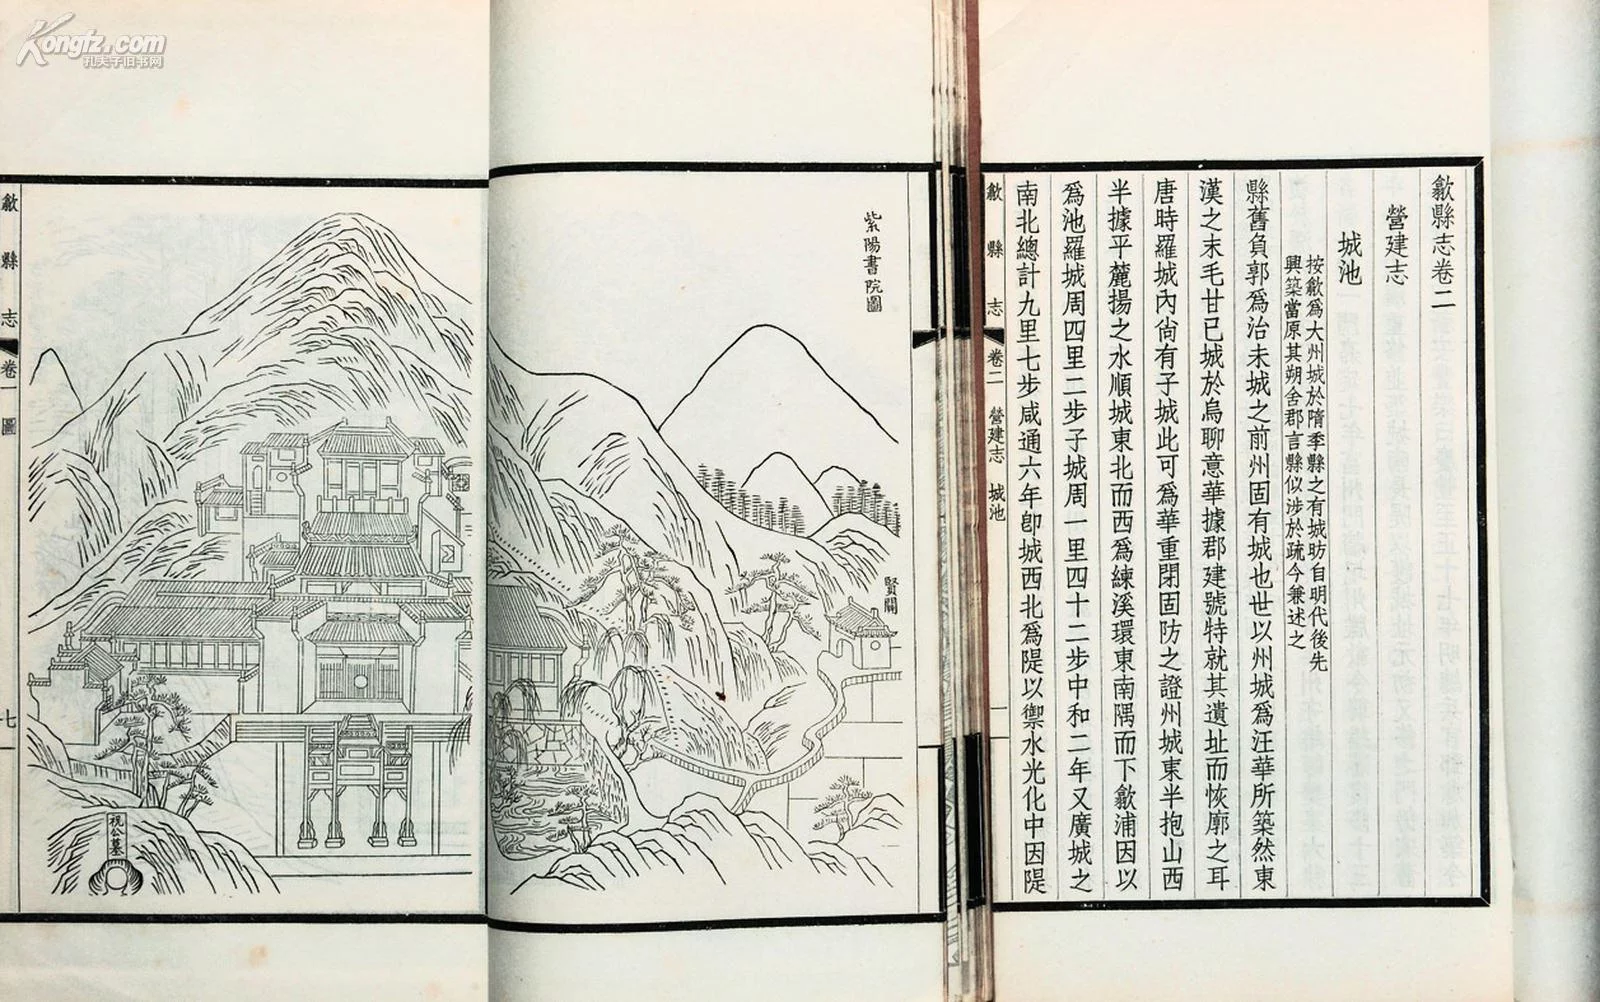 歙縣志卷二
營建志
城池
按歙爲大州城於隋季縣之有城昉自明代後先
興築當原其朔舍郡言縣似涉於疏今兼述之
縣舊負郭爲治未城之前州固有城也世以州城爲汪華所築然東
漢之末毛甘已城於烏聊意華據郡建號特就其遺址而恢廓之耳
唐時羅城內尙有子城此可爲華重閉固防之證州城東半抱山西
半據平麓揚之水順城東北而西爲練溪環東南隅而下歙浦因以
爲池羅城周四里二步子城周一里四十二步中和二年又廣城之
南北總計九里七步咸通六年卽城西北爲隄以禦水光化中因隄
歙縣志 卷二 營建志 城池 一
紫陽書院圖
賢關
祝公墓
歙縣志 卷一 圖 七
Kongfz.com
孔夫子旧书网